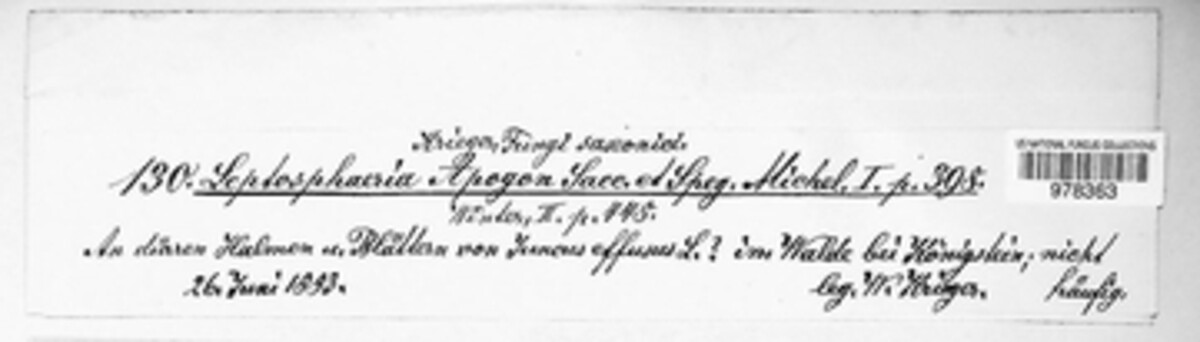 Krieger, Fungi saxonici.
130. Leptosphaeria Apogon Sacc. et Speg. Michel. I. p. 398.
Winter, II. p. 445.
An dürren Halmen u. Blättern von Juncus effusus L.? im Walde bei Königstein, nicht häufig.
26. Juni 1893.
leg. W. Krieger.
US NATIONAL FUNGUS COLLECTIONS
978363